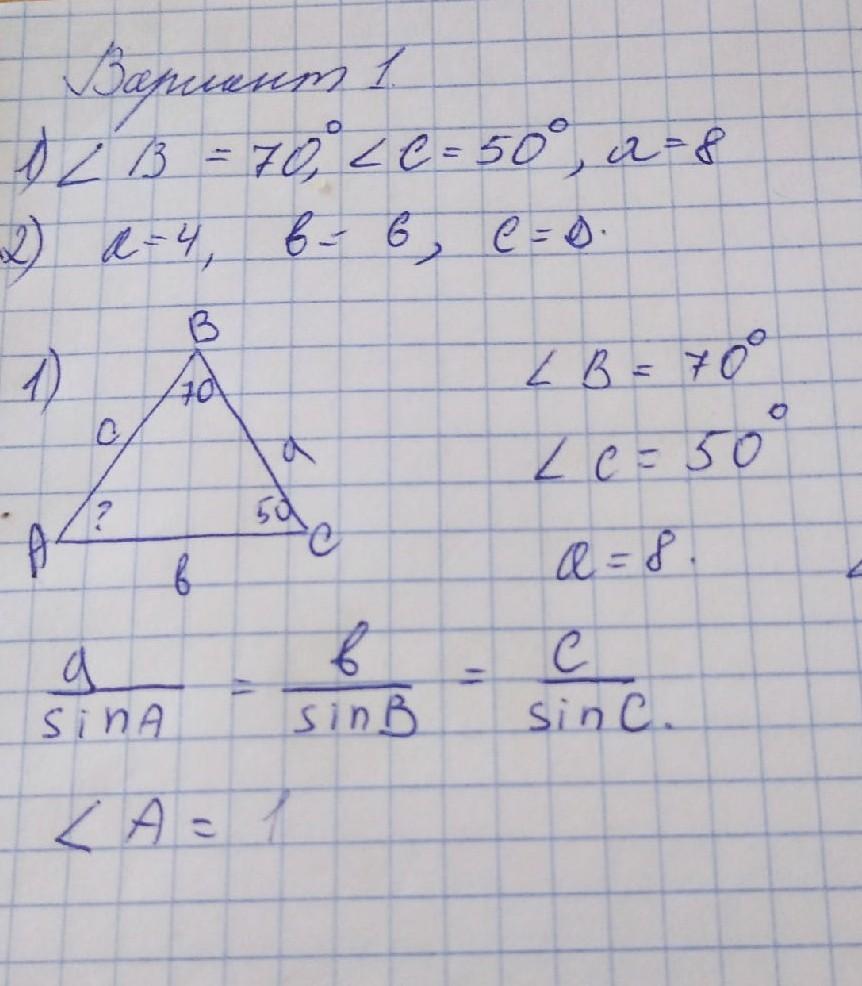 Вариант 1.
1) ∠ B = 70°, ∠ C = 50°, a = 8
2) a = 4, b = 6, c =
B
1) 70 ∠ B = 70°
c a ∠ C = 50°
A ? 50 C
b a = 8.
a/sinA = b/sinB = c/sinC.
∠ A = 1